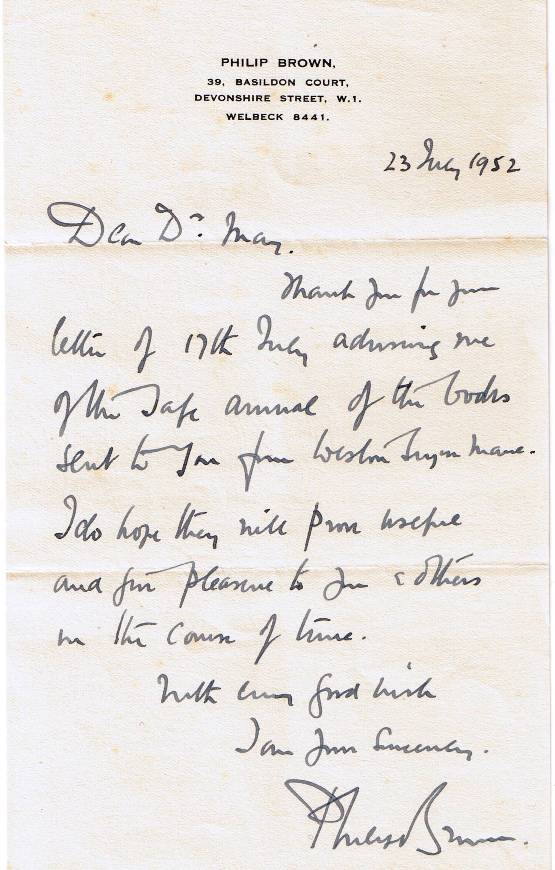 PHILIP BROWN,
39, BASILDON COURT,
DEVONSHIRE STREET, W.1.
WELBECK 8441.
23 July 1952
Dear Dr. May.
Thank you for your
letter of 17th July advising me
of the safe arrival of the books
sent to you from Weston Super Mare.
I do hope they will prove useful
and give pleasure to you & others
in the course of time.
With every good wish
I am yours sincerely.
Philip Brown.